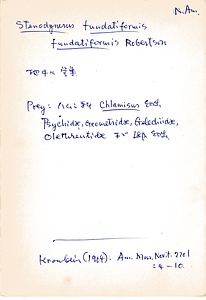 N. Am.
Stenodynerus fundatiformis
fundatiformis Robertson
地中に営巣
Prey: ハムシ科 Chlamisus 幼虫
Psychidae, Geometridae, Gelechiidae,
Olethreutidae などLep. 幼虫
Krombein (1964). Am. Mus. Novit. 2201
: 4-10.